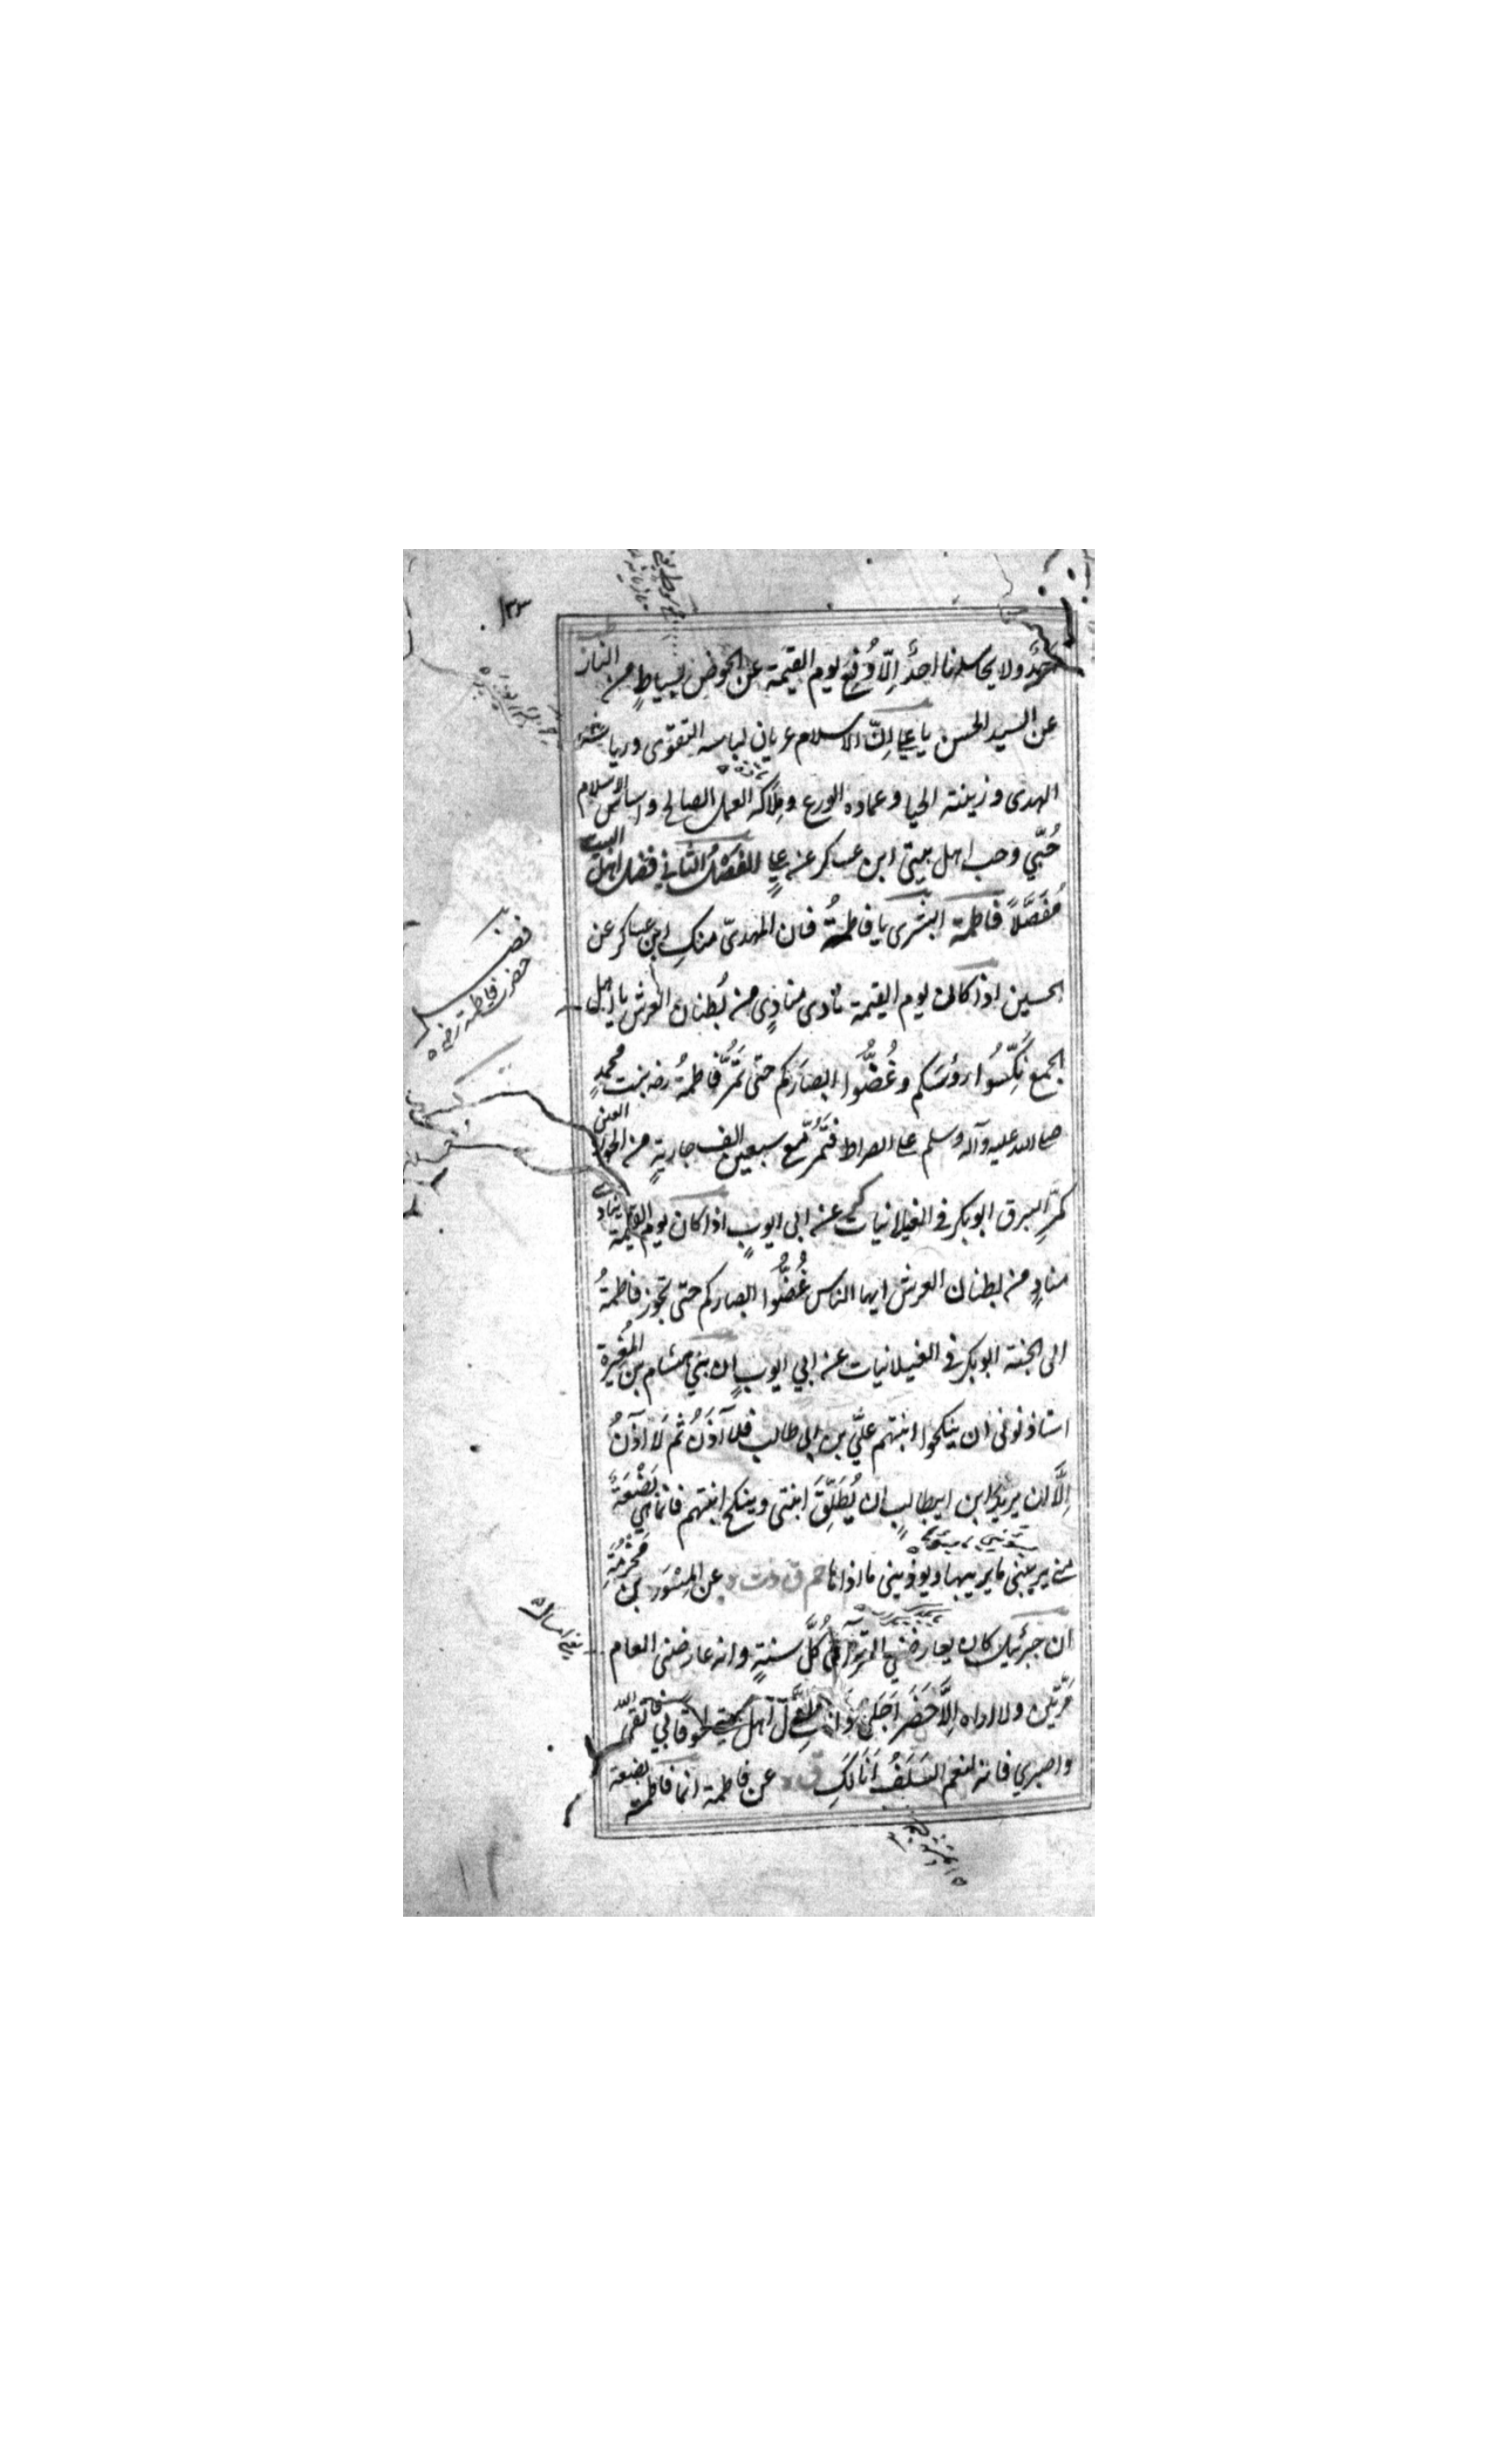 احدٌ ولا يحاسدنا احدٌ اِلّا دُفِعَ يوم القيمة عن الحوض بسياطٍ من النار
عن السيد الحسن يا علي اِنّ الاسلام عريان لباسه التقوى ورياشه
الهدى وزينته الحيا وعماده الورع وملاكه العمل الصالح واساس الاسلام
حُبّي وحب اهل بيتي ابن عساكر عن علي الفصل الثاني في فضل اهل البيت
مُفَصَّلاً فاطمة البشرى يا فاطمةُ فان المهديّ منكِ ابن عساكر عن
الحسين اذا كان يوم القيمة نادى منادٍ من بُطنان العرش يا اهل
الجمع نَكِّسُوا رؤسَكم وغُضُّوا ابصارَكم حتى تَمُرَّ فاطمةُ رضه بنت محمدٍ
صلى الله عليه وآله وسلم على الصراط فتَمُرُّ مع سبعين الف جاريةٍ من الحور العين
كمَرِّ البرق ابو بكر في الغيلانيات عن ابى ايوبٍ اذا كان يوم القيمة ينادي
منادٍ من بطنان العرش ايها الناس غُضُّوا ابصاركم حتى تجوز فاطمةُ
الى الجنة ابو بكر في الغيلانيات عن ابي ايوبٍ ان بني هشام بن المُغِيرة
استاذنونى ان ينكحوا ابنتهم عليَّ بن ابى طالب فلا آذَنُ ثم لَا آذَنُ
اِلَّا ان يريد ابن ابيطالبٍ ان يُطَلِّقَ ابنتى وينكح ابنتهم فانما هي بَضْعَةٌ
منى يريبنى ما يريبها ويوذينى ما اذاها حم ق د ت ه عن المِسْوَر بن مَخْرَمَةَ
ان جبرئيل كان يعارضني القرآن كُلَّ سنةٍ وانه عارضنى العام
مَرَّتين ولا اراه اِلَّا حَضَرَ اَجَلى وانكِ اوّل اهل بيتي لحوقا بي فاتقى الله
واصبري فانه لنعم السَلَفُ اَنَا لَكِ ق ه عن فاطمة انما فاطمة بضعة
فضل
حضرت فاطمة رضه